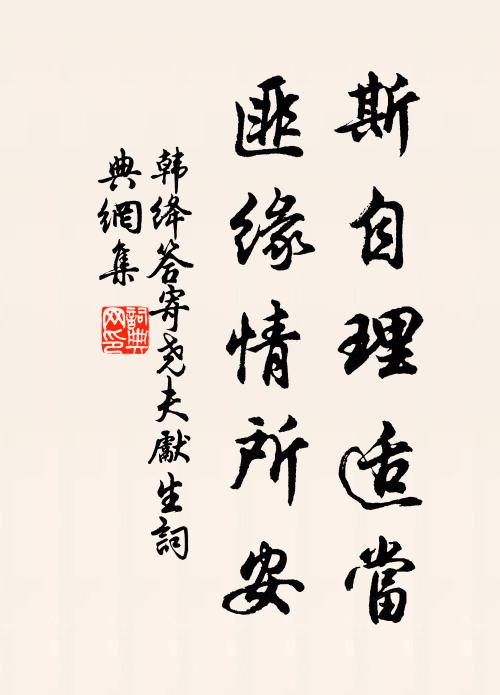 斯自理适當
匪緣情所安
韩绛答寄尧夫獻生詞
典網集
詞典网印